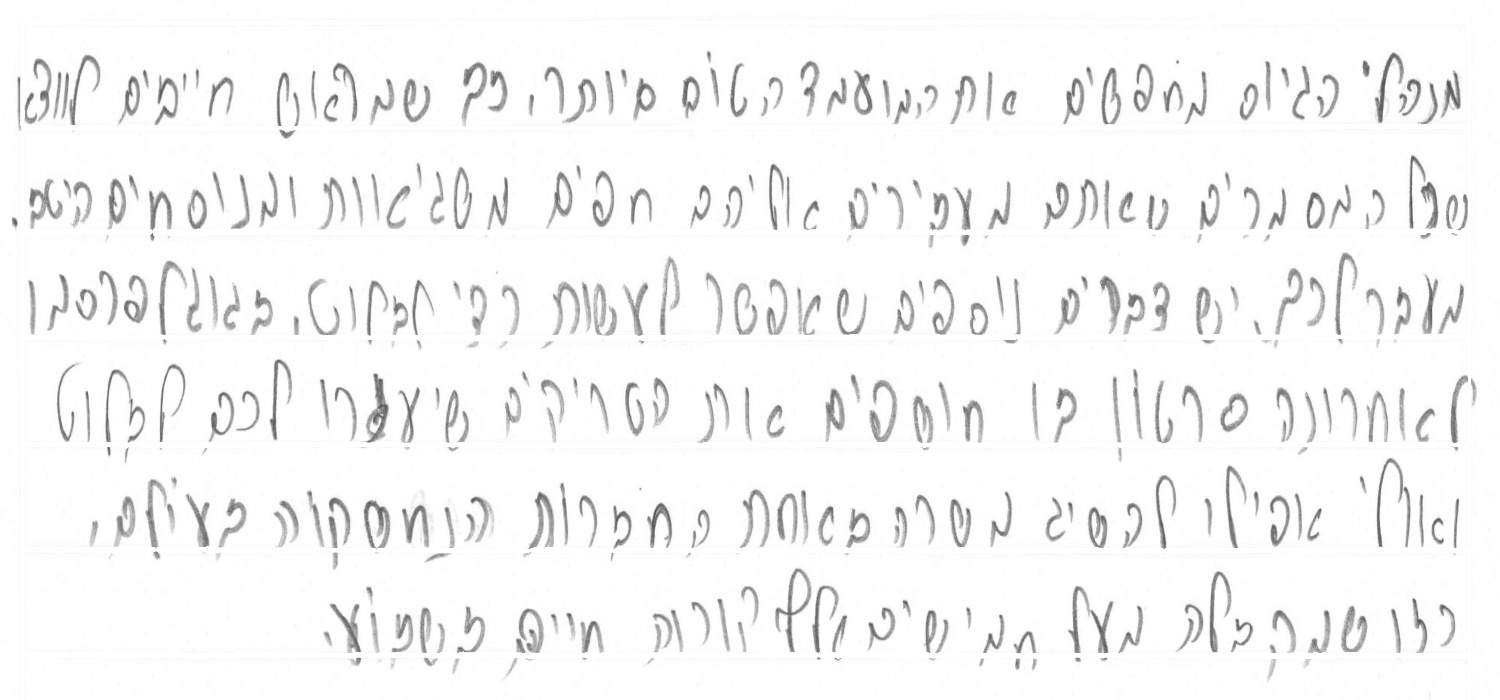 מנהלי הגיוס מחפשים את המועמד הטוב ביותר, כך שמראיון חייבים לוודא
שכל המסמכים שאתם מעבירים אליהם חפים משגיאות ומנוסחים היטב.
מעבר לכך, יש דברים נוספים שאפשר לעשות כדי לבלוט. בגוגל פרסמו
לאחרונה סרטון בו חוספים את הטריקים שיעזרו לכם לבלוט
ואולי אפילו להשיג משרה באחת החברות הנחשקות בעולם,
כזו שמקבלת מעל חמישים אלף קורות חיים בשבוע.